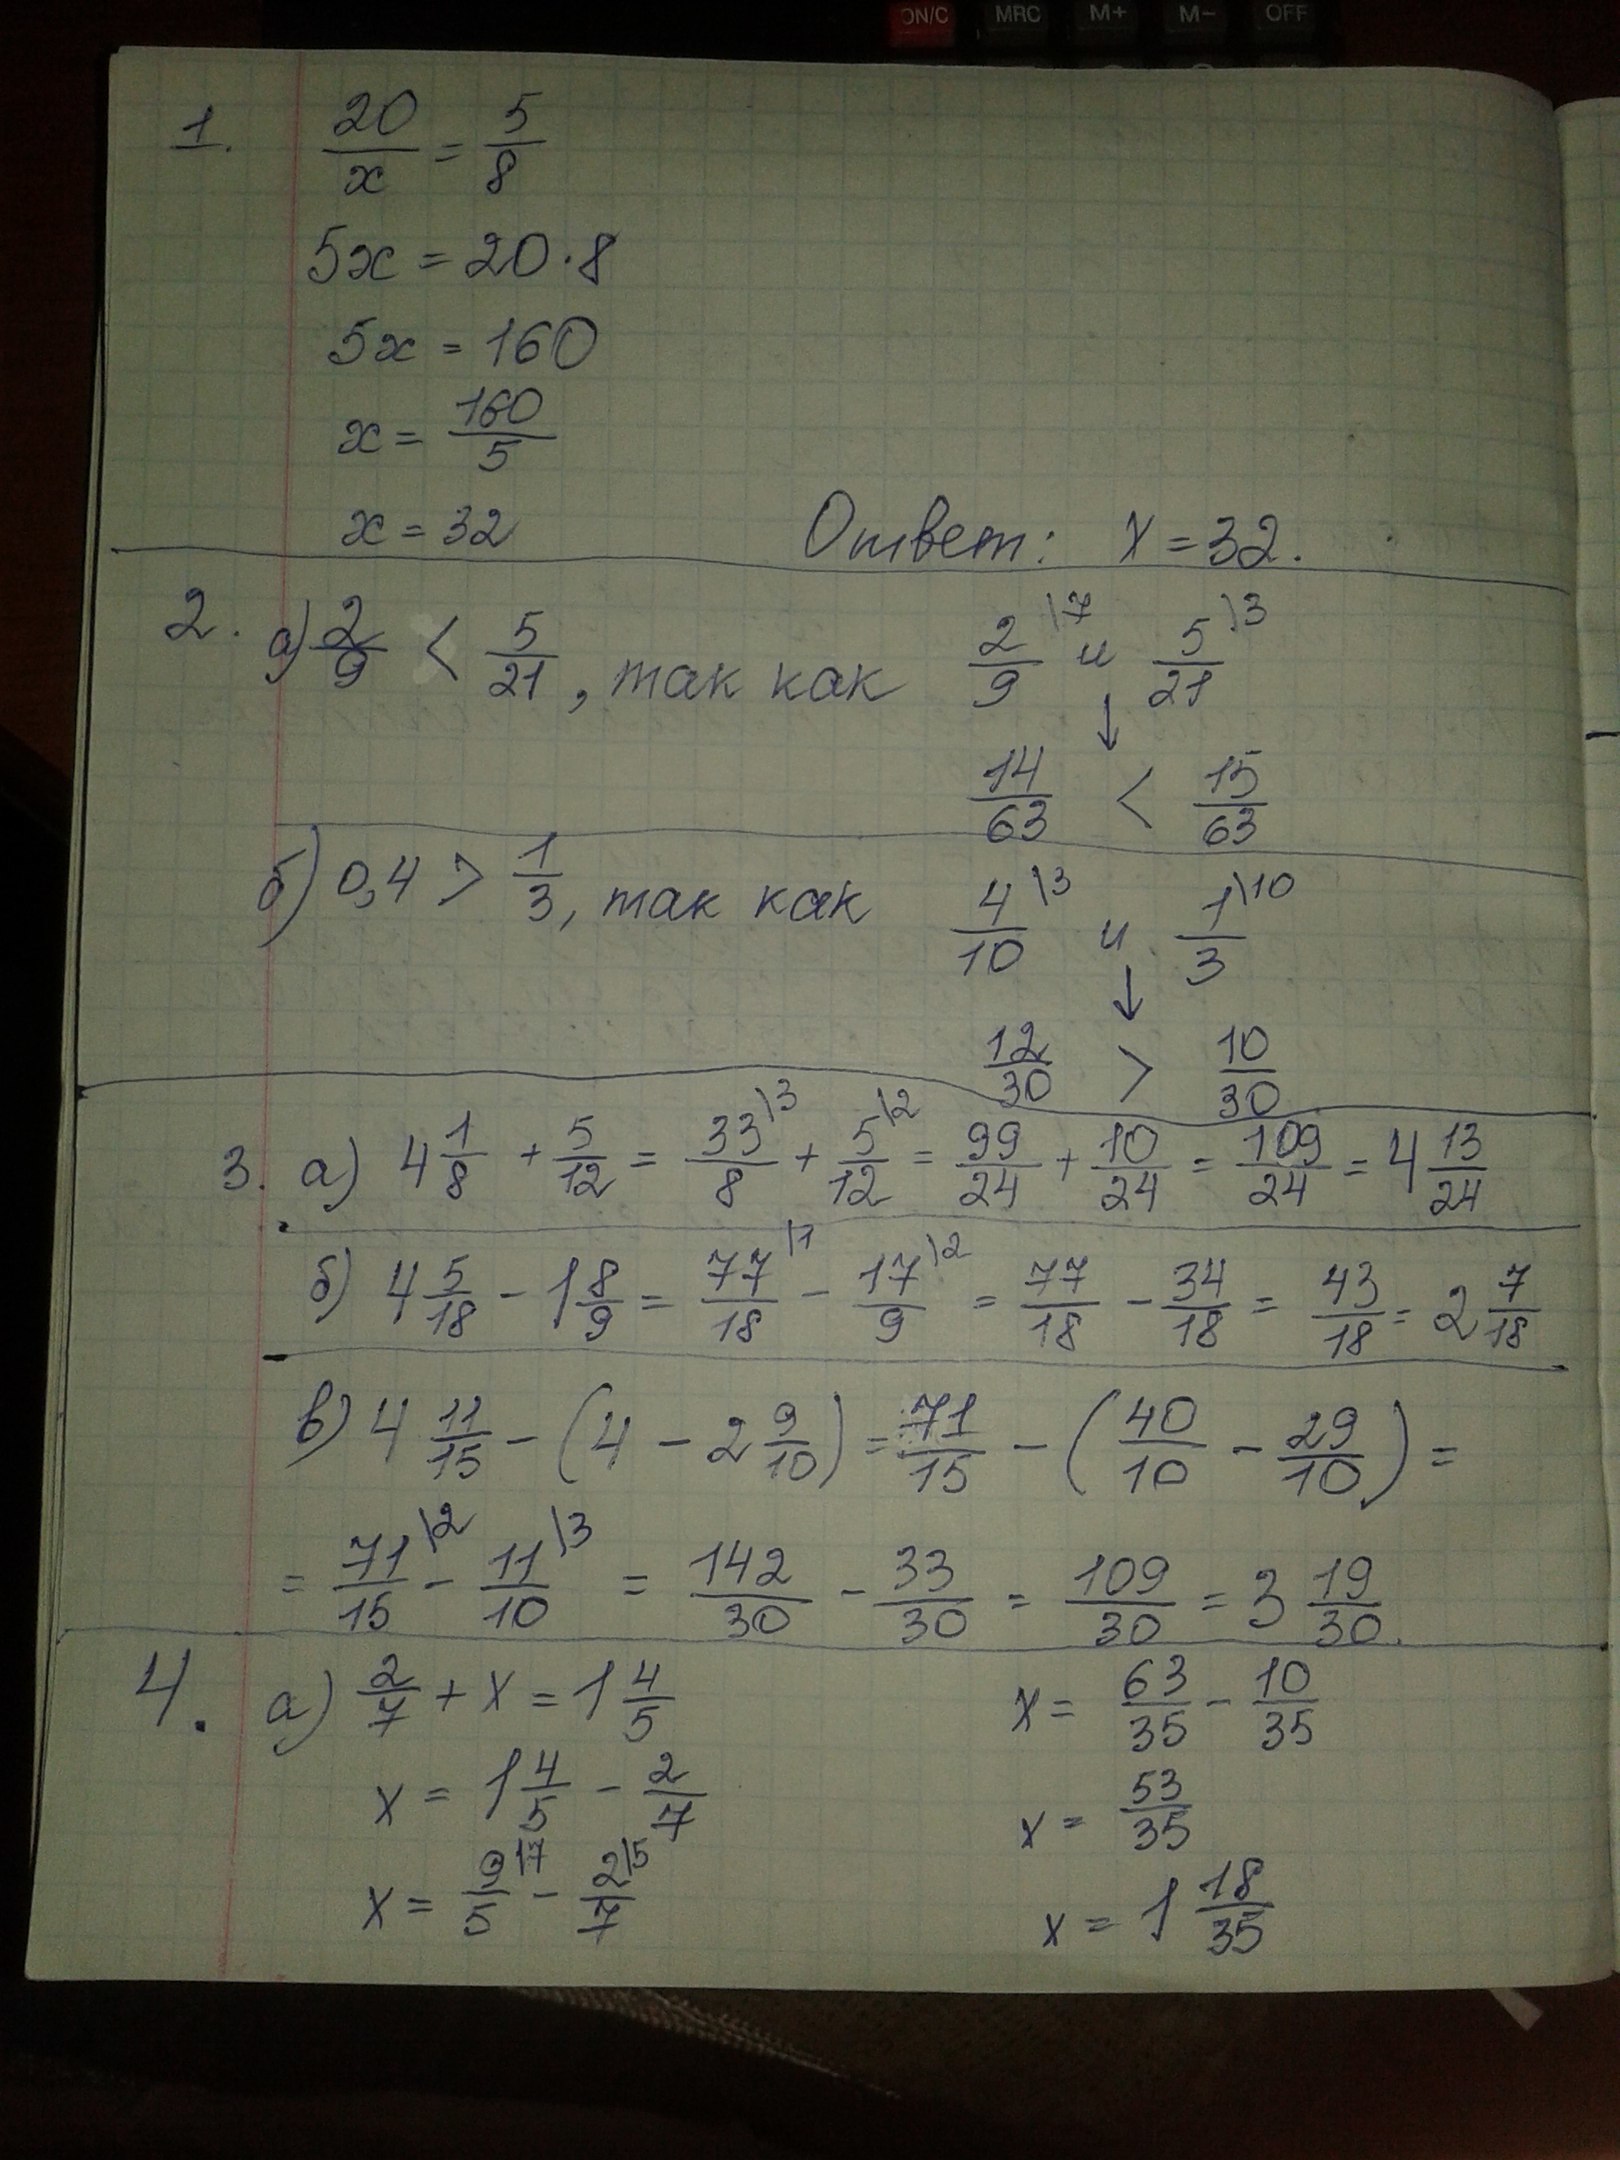 ON/C MRC M+ M- OFF
1. 20/x = 5/8
5x = 20·8
5x = 160
x = 160/5
x = 32
Ответ: x = 32.
2. а) 2/9 < 5/21, так как 2/9 \7 и 5/21 \3
↓
14/63 < 15/63
б) 0,4 > 1/3, так как 4/10 \3 и 1/3 \10
↓
12/30 > 10/30
3. а) 4 1/8 + 5/12 = 33/8 \3 + 5/12 \2 = 99/24 + 10/24 = 109/24 = 4 13/24
б) 4 5/18 - 1 8/9 = 77/18 \1 - 17/9 \2 = 77/18 - 34/18 = 43/18 = 2 7/18
в) 4 11/15 - (4 - 2 9/10) = 71/15 - (40/10 - 29/10) =
= 71/15 \2 - 11/10 \3 = 142/30 - 33/30 = 109/30 = 3 19/30.
4. а) 2/7 + x = 1 4/5
x = 1 4/5 - 2/7
x = 9/5 \7 - 2/7 \5
x = 63/35 - 10/35
x = 53/35
x = 1 18/35